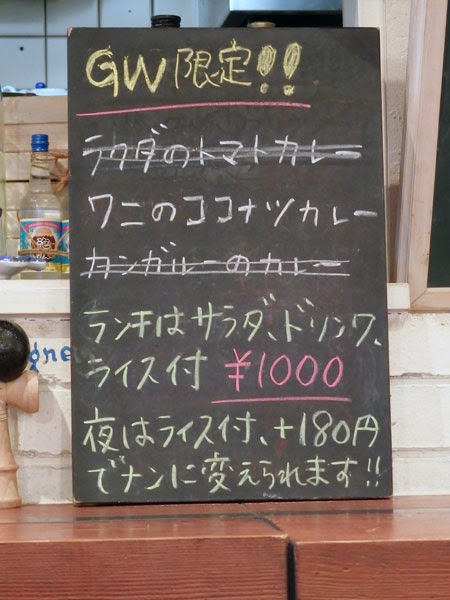 GW限定!!
ラクダのトマトカレー
ワニのココナツカレー
カンガルーのカレー
ランチはサラダ、ドリンク、
ライス付 ¥1000
夜はライス付、+180円
でナンに変えられます!!